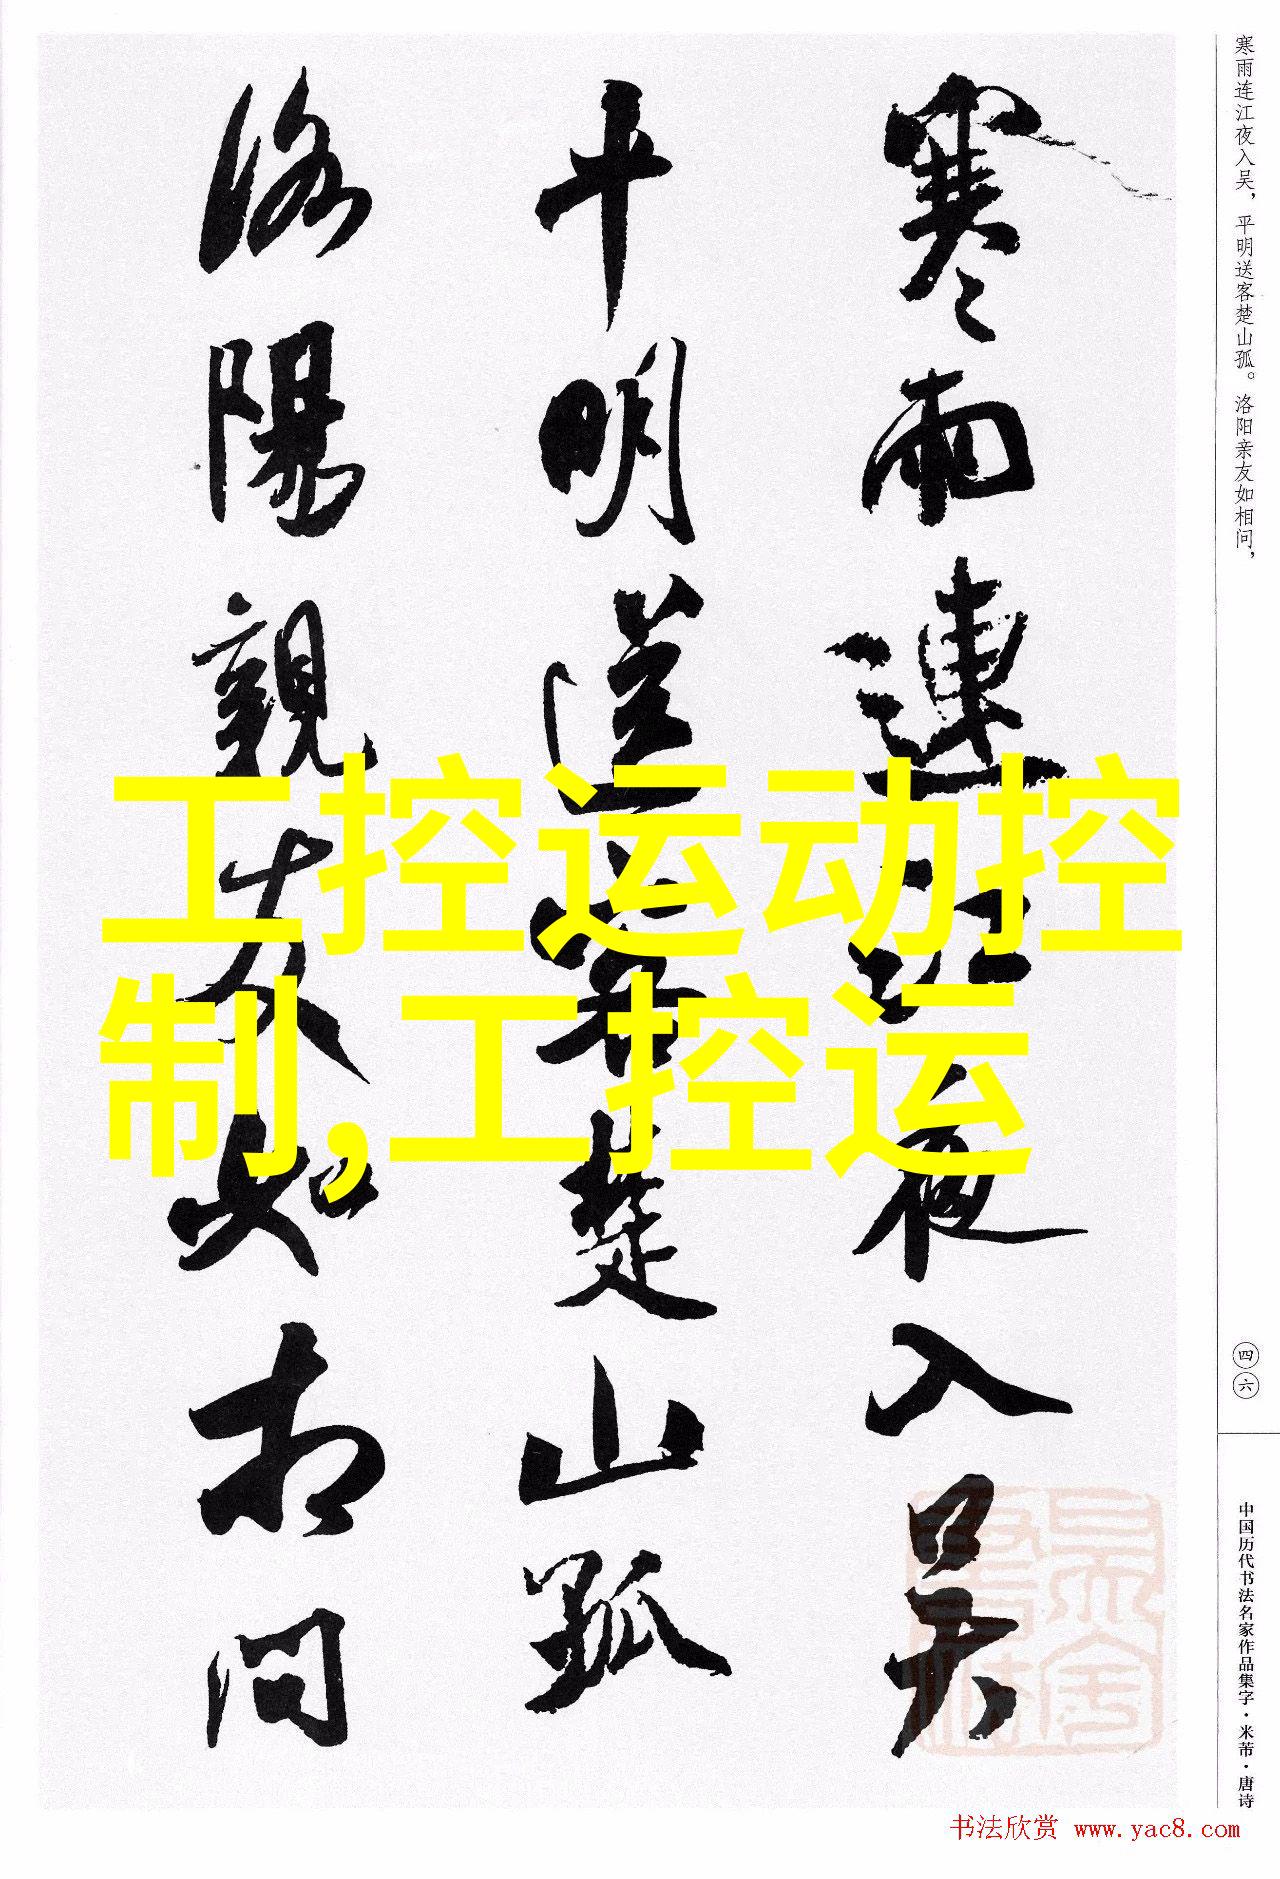 寒雨连江夜入吴，平明送客楚山孤。洛阳亲友如相问，
四六
中国历代书法名家作品集字·米芾·唐诗
寒雨連江夜入吴
平明送客楚山孤
洛陽親友如相問
工控运动控
制,工控运
书法欣赏 www.yac8.com